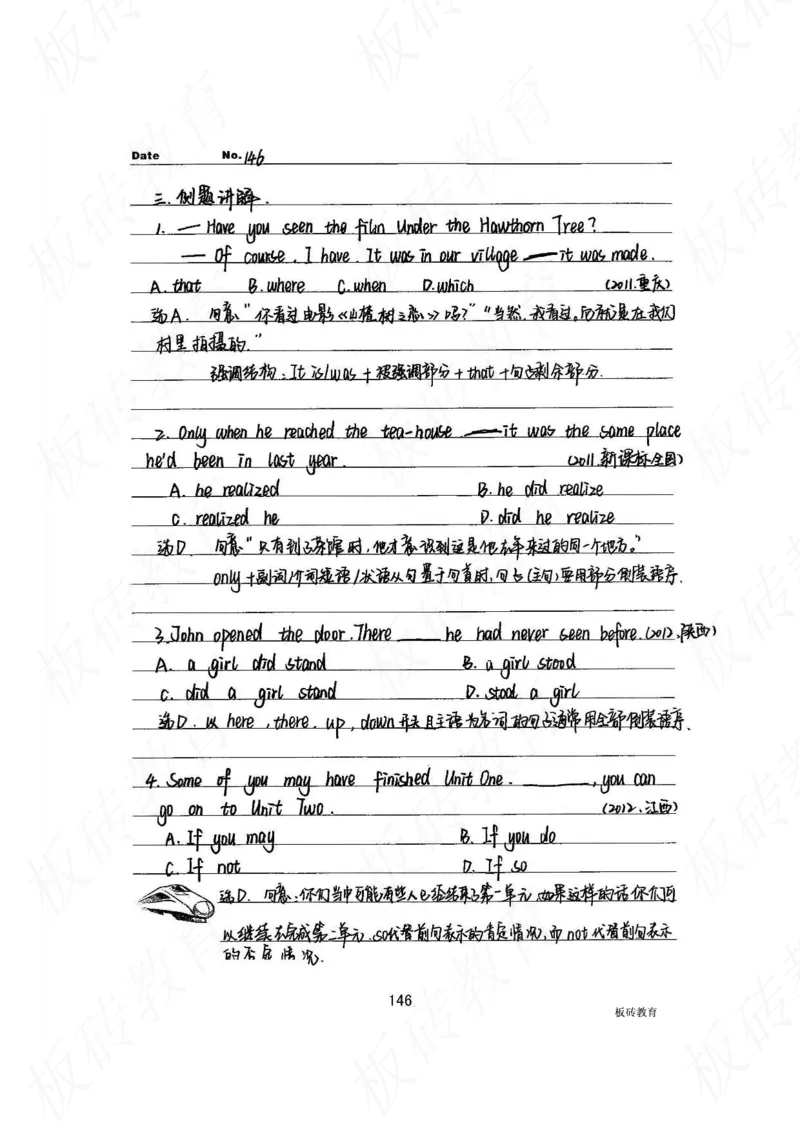 Date No. 146
三. 例题讲解.
1. — Have you seen the film Under the Hawthorn Tree?
— Of course. I have. It was in our village ——it was made.
A. that B. where C. when D. which (2011.重庆)
选A. 句意“你看过电影《山楂树之恋》吗?”“当然,我看过,历就是在我们
村里拍摄的.”
强调结构: It is/was + 被强调部分 + that + 句子剩余部分.
2. Only when he reached the tea-house ——it was the same place
he'd been in last year. (2011.新课标全国)
A. he realized B. he did realize
C. realized he D. did he realize
选D. 句意“只有到了茶馆时,他才意识到这是他去年来过的同一个地方。”
only+副词/介词短语/状语从句置于句首时,句子(主句)要用部分倒装语序.
3. John opened the door. There ____ he had never seen before. (2012.陕西)
A. a girl did stand B. a girl stood
C. did a girl stand D. stood a girl
选D. 以 here, there, up, down开头且主语为名词的句子通常用全部倒装语序.
4. Some of you may have finished Unit One. ______, you can
go on to Unit Two. (2012.江西)
A. If you may B. If you do
C. If not D. If so
选D. 句意:你们当中可能有些人已经结束了第一单元,如果这样的话你们可
以继续去完成第二单元. so代替前句表示的肯定情况,而not代替前句表示
的否定情况.
146
板砖教育